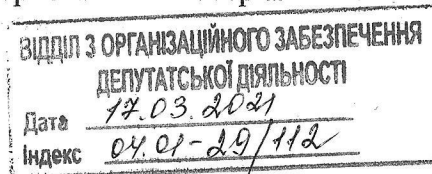 ВІДДІЛ З ОРГАНІЗАЦІЙНОГО ЗАБЕЗПЕЧЕННЯ
ДЕПУТАТСЬКОЇ ДІЯЛЬНОСТІ
Дата 17.03.2021
Індекс 04.01-29/112